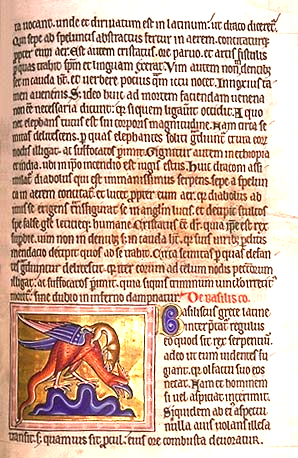 ra uocant. unde et diriuatum est in latinum. ut draco diceret᷑.
Qui sepe ab speluncis abstractus fertur in aerem. concitaturq;
ꝓpter eum aer. Est autem cristatus. ore paruo. et artis fistulis
ꝑ quas trahit spm̄ et linguam exerat. Vim autem non in dentib;
s; in cauda h̄t. et uerbere potius quam nocet. Innoxius ta
men a uenenis. S; ideo huic ad mortem faciendam uenena
non ee᷑ necessaria dicunt. qr̄ siquem ligarit occidit. A quo
nec elephans tutus est sui corporis magnitudine. Nam circa se
mitas delitescens. ꝑ quas elephantes soliti gͣdiunt᷑ crura eorͣ
nodis illigat. ac suffocatos ꝑimit. Gignitur autem in ethiopia
et india. ubi in ip̄o incendio est iugis estus. Huic draconi assi
milat᷑ diabolus qui est immanissimus serpens. sepe a spelun
ca in aerem concitat᷑. et lucet ꝓpter eum aer. qr̄ diabolus ab
imis se erigens transfigurat᷑ se in anglm̄ lucis. et decipit stultos
spe false gl̄e leticieq; humane. Cristatus ee᷑ dr̄. quia ip̄e est rex
suꝑbie. uim non in dentib; s; in cauda h̄t. qr̄ suis uirib; ꝑditis
mendacio decipit quos ad se trahit. Circa semitas ꝑ quas elefan
tes gͣdiuntur delitescit. qr̄ iter eorum ad celum nodis peccatorum
illigat. ac suffocatos ꝑimit. quia siquis criminum uinculo irretit᷑
morit᷑. sine dubio in inferno dampnatur. De Basilisco.
Basiliscus grece latine
interp̄tat᷑ regulus
eo quod sit rex serpentium.
adeo ut eum uidentes fu
giant. qr̄ olfactu suo eos
necat. Nam et hominem
si uel aspiciat interimit.
Siquidem ad eius aspectum
nulla auis uolans illesa
transit. s; quamuis sit ꝓcul. eius ore combusta deuoratur.